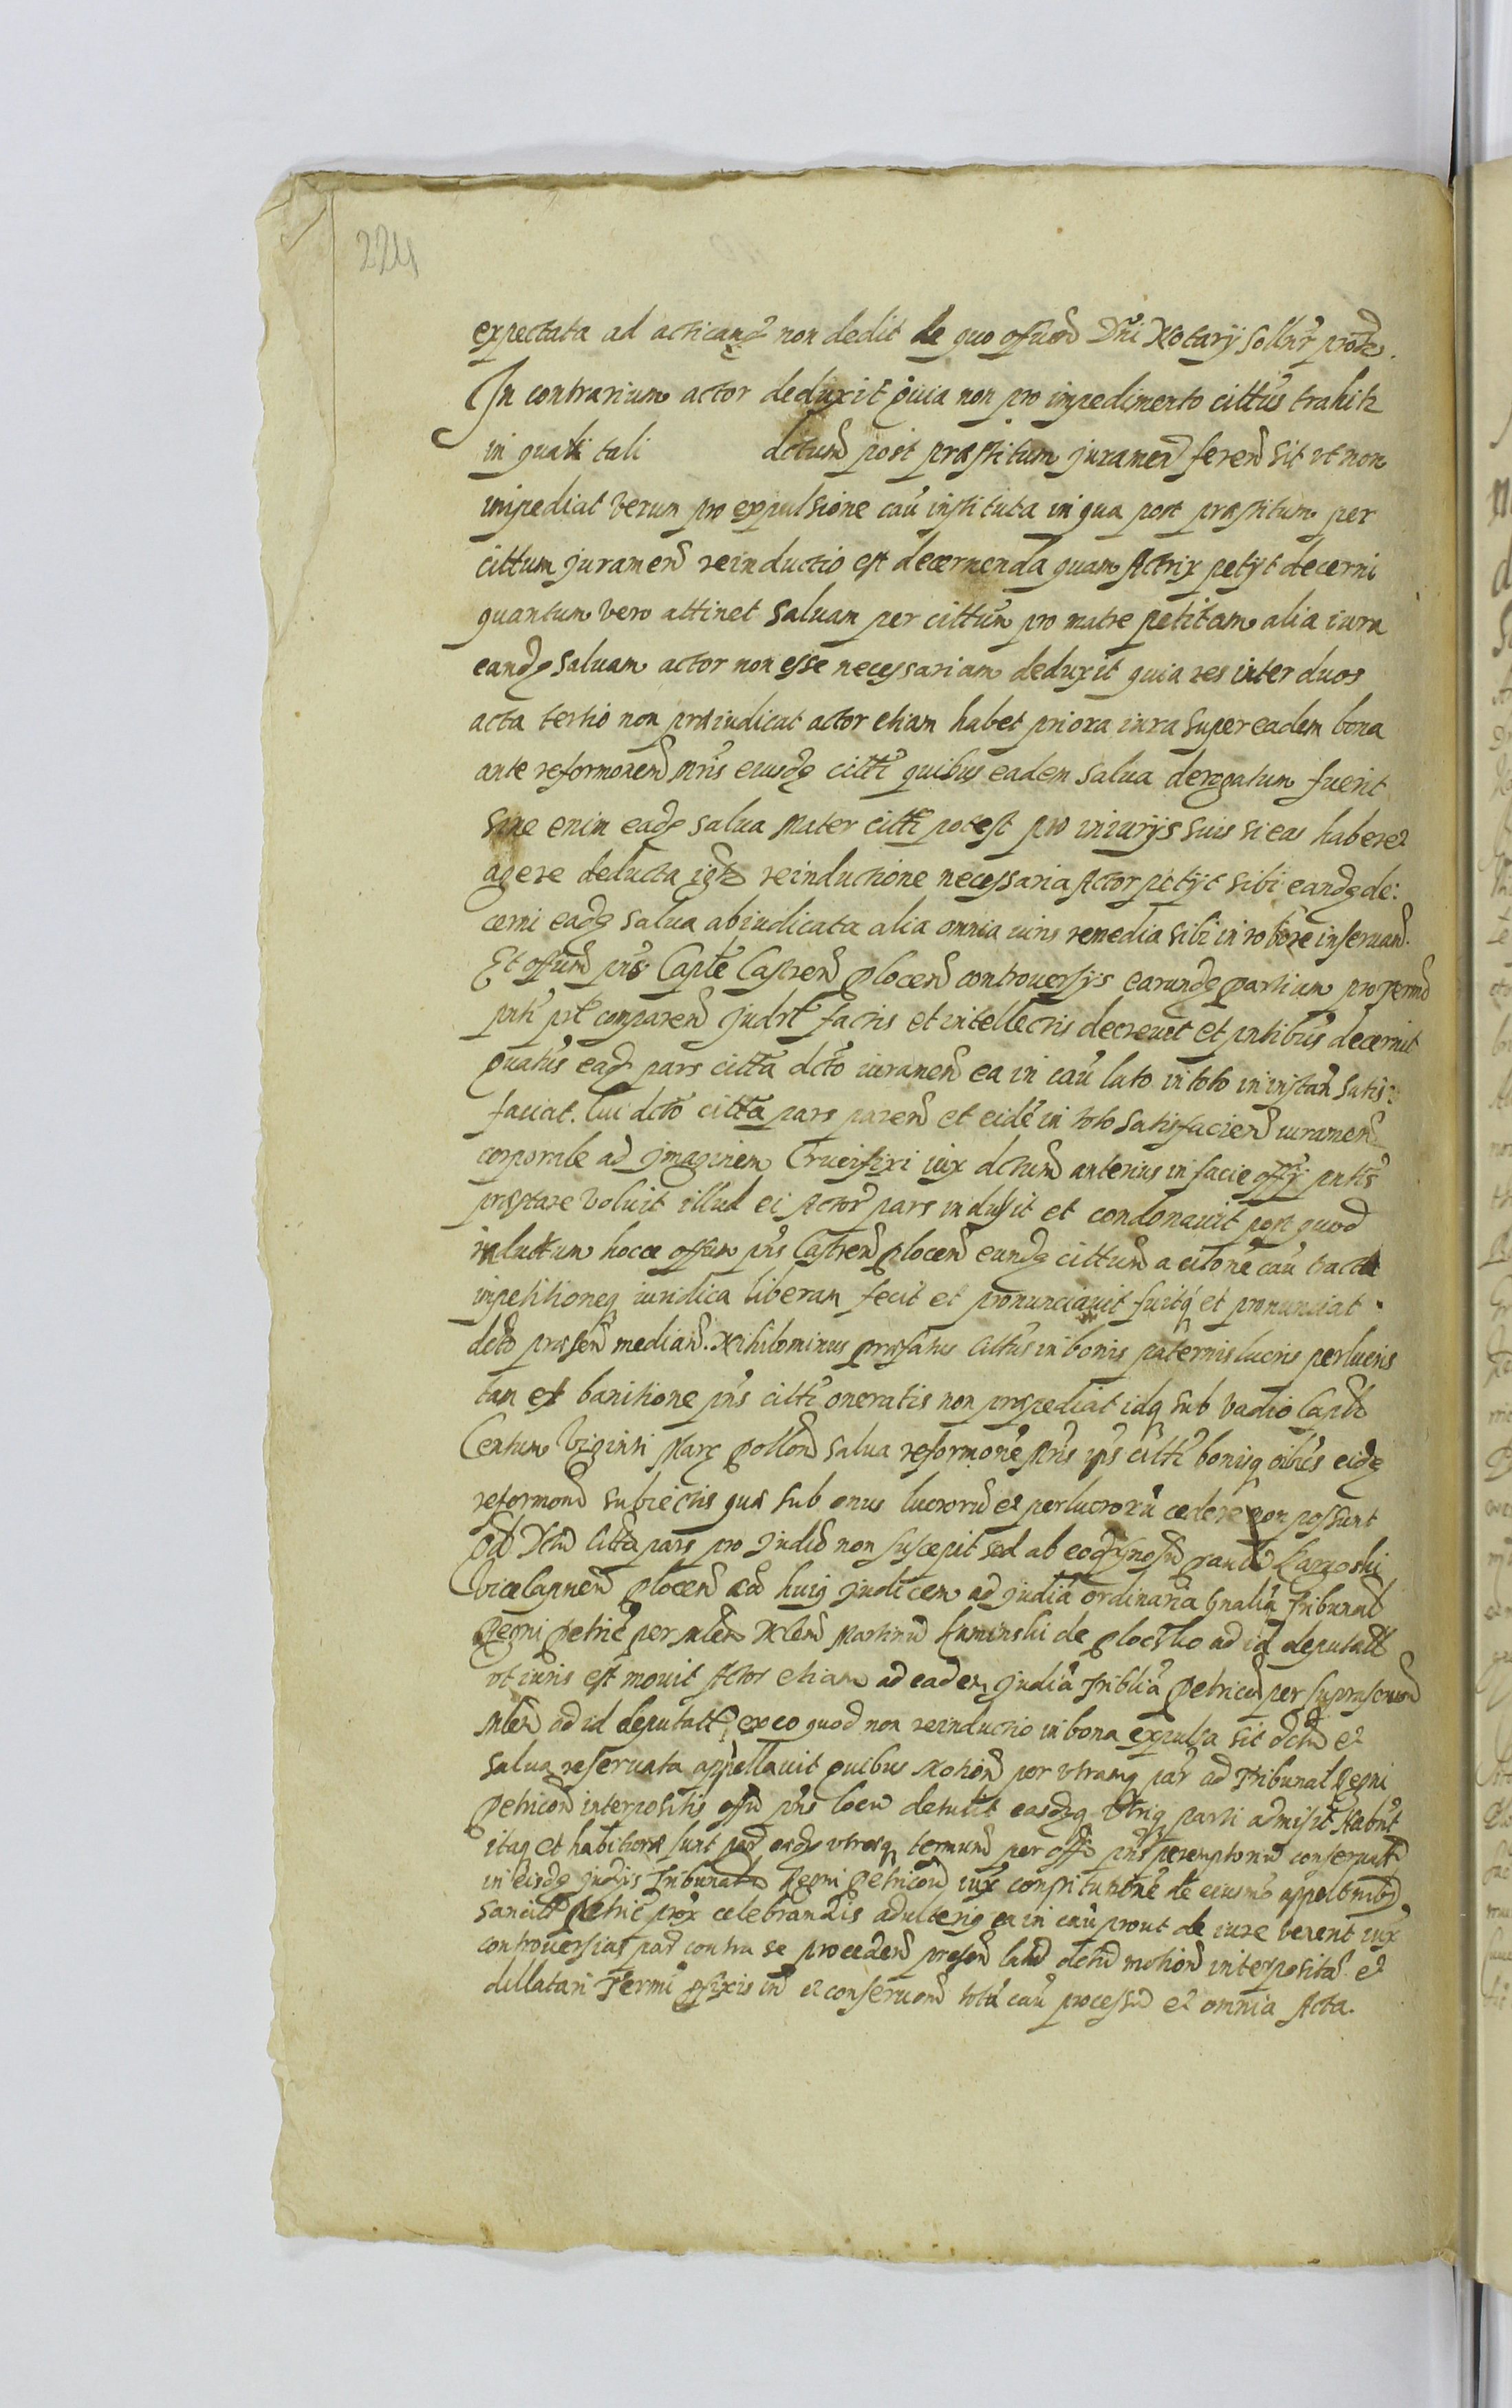 224
expectata ad acticand non dedit de quo offum Dni Notarij sollnr protr.
In contrarium actor deduxit quia non pro impedimento citťus trahitr
in quali tali dctum post præstitum juramen ferend sit vt non
impediat verum pro expulsione cau instituta in qua post præstitum per
cittum juramen reinductio est decernenda quam Actrix petyt decerni
quantum vero attinet saluam per cittum pro matre petitam alia iura
eandq saluam actor non esse necessariam deduxit quia res inter duos
acta tertio non præiudicat actor etiam habet priora iura super eadem bona
ante reformoem Mris eiusdq citti quibus eadem salua derogatum fuerit
Sine enim eadq salua Mater citti potest pro iniurijs suis si eas haberet
agere deducta igtr reinductione necessaria Actor petyt sibi eandq de:
cerni eadq salua abiudicata alia omnia iuris remedia sibi in robore inseruand.
Et offum pns Capte Castren Plocen controuersijs earundq partium pro termo
pnti prt comparen judrt factis et intellectis decreuit et pntibus decernit
quatus eadq pars citta dcto iuramen ea in cau lato in toto in instan satis:
faciat. Cui dcto citta pars paren et eide in toto satisfacien iuramen
corporale ad Imaginem Crucifixi iux dctum anterius in facie offij pntis
præstare voluit illud ei Actor pars indulsit et condonauit post quod
indultum hocce offum pns Castren Plocen eundq cittum a citone cau tacta
impetitioneq iuridica liberam fecit et pronunciauit fuitq et pronunciat
dcto præsen median. Nihilominus præfatus cittus in bonis paternis lucris perlucris
tam et banitione pns citti oneratis non præpediat idq sub vadio Caplt
Centum Viginti Marc Pollon salua reformone Mris ips citti bonisq oibus eidq
reformon subiectis quæ sub onus lucrorum et perlucroru cedere non possunt
Qd dctum Citta pars pro judio non suscepit sed ab eodq gnoso Paulo Kargoski
Vicecapnen Plocen ead huiq judicem ad judia ordinaria gnalia Tribunal
Regni Petric per Mlem Nlem Martinum Kaminski de Plocsko ad id deputatt
vt iuris est mouit Actor etiam ad eadem judia Triblia Petricon per suprascr
Mlem ad id deputatt ex eo quod non reinductio in bona expulsa sit dcta et
salua reseruata appellauit quibus motion per vtramq par ad Tribunal Regni
Petricon interpositis offm pns locu detulit easdqq vtriq parti admisit Habnt
itaq et habitioræ sunt par eadq vtræq termum per offm pns peremptorium conseruatt
in eisdq judijs Tribunal Regni Petricon iux constitutione de eiusmo appeltnibq
sancitt Petric prox celebrandis adulteriq ea in cau prout de iure venent iux
controuersias par contra se proceden presen latu dctum motion interposita et
dillatari Termi pfixis in et conseruand totu cau processu et omnia Acta.